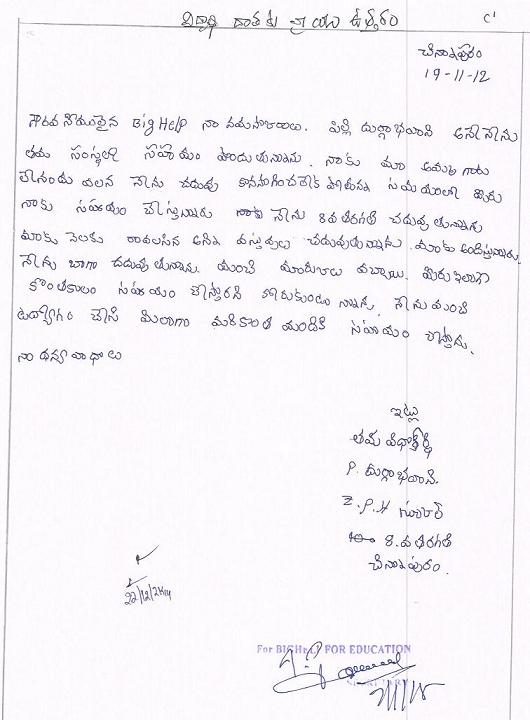 విద్యార్థి దాతకు వ్రాయు ఉత్తరం
C1
చినాపురం
19-11-12
గౌరవనీయులైన Big Help నా నమస్కారాలు. పిల్లి దుర్గాభవాని అనే నేను
తమ సంస్థలో సహాయం పొందుతున్నాను. నాకు మా అమ్మ గారు
లేనందు వలన నేను చదువు కొనసాగించలేక పోతున్న సమయంలో మీరు
నాకు సహాయం చేస్తున్నారు నేను 8వ తరగతి చదువుతున్నాను
మాకు నెలకు కావలసిన అన్ని వస్తువులు చదువుతున్నాను. మాకు అందిస్తున్నారు.
నేను బాగా చదువుతున్నాను మంచి మార్కులు వచ్చాయి. మీరు ఇలాగే
కొంతకాలం సహాయం చేస్తారని కోరుకుంటున్నాను. నేను మంచి
ఉద్యోగం చేసి మీలాగా మరికొంత మందికి సహాయం చేస్తాను.
నా ధన్యవాదాలు
ఇట్లు
తమ విధార్థి
P. దుర్గాభవాని.
Z.P.H స్కూల్
8.వ తరగతి
చినాపురం.
22/12/2k14
For BIGHELP FOR EDUCATION
SECRETARY